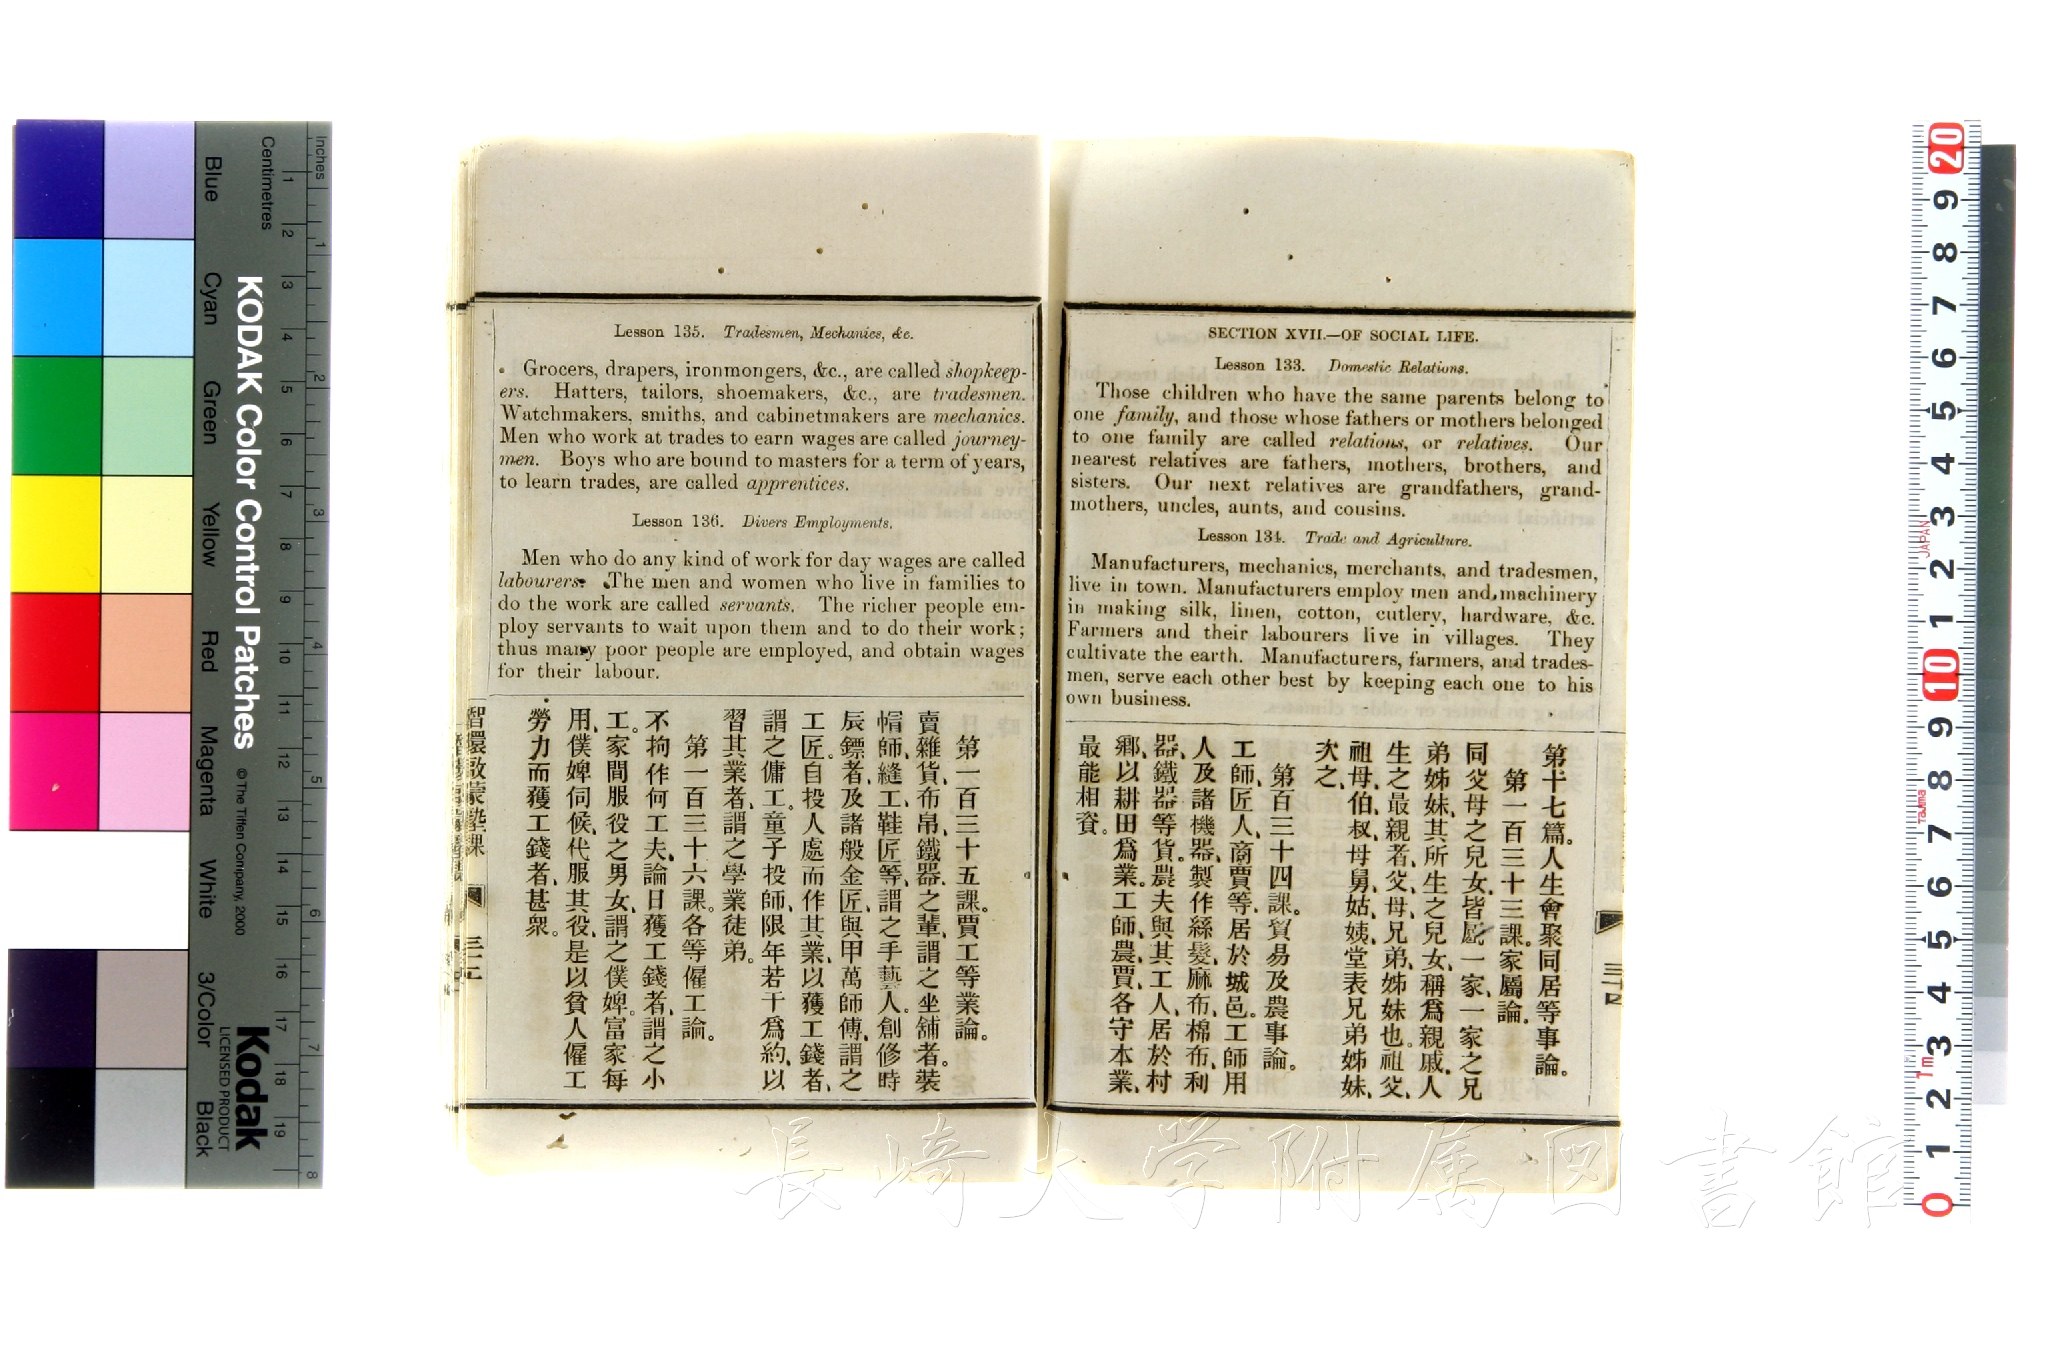 SECTION XVII.—OF SOCIAL LIFE.
Lesson 133. Domestic Relations.
Those children who have the same parents belong to
one family, and those whose fathers or mothers belonged
to one family are called relations, or relatives. Our
nearest relatives are fathers, mothers, brothers, and
sisters. Our next relatives are grandfathers, grand-
mothers, uncles, aunts, and cousins.
Lesson 134. Trade and Agriculture.
Manufacturers, mechanics, merchants, and tradesmen,
live in town. Manufacturers employ men and machinery
in making silk, linen, cotton, cutlery, hardware, &c.
Farmers and their labourers live in villages. They
cultivate the earth. Manufacturers, farmers, and trades-
men, serve each other best by keeping each one to his
own business.
第十七篇。人生會聚同居等事論。
第一百三十三課。家屬論。
同父母之兒女、皆屬一家、一家之兄
弟姊妹、其所生之兒女、稱爲親戚、人
生之最親者、父、母、兄弟、姊妹也。祖父、
祖母、伯、叔、母舅、姑、姨、堂表兄弟姊妹、
次之、
第百三十四課。貿易及農事論。
工師、匠人、商賈等、居於城邑。工師用
人及諸機器、製作絲髮、麻布、棉布、利
器、鐵器等貨。農夫與其工人、居於村
鄉、以耕田爲業。工師、農、賈、各守本業、
最能相資。
三十四
Lesson 135. Tradesmen, Mechanics, &c.
Grocers, drapers, ironmongers, &c., are called shopkeep-
ers. Hatters, tailors, shoemakers, &c., are tradesmen.
Watchmakers, smiths, and cabinetmakers are mechanics.
Men who work at trades to earn wages are called journey-
men. Boys who are bound to masters for a term of years,
to learn trades, are called apprentices.
Lesson 136. Divers Employments.
Men who do any kind of work for day wages are called
labourers. The men and women who live in families to
do the work are called servants. The richer people em-
ploy servants to wait upon them and to do their work;
thus many poor people are employed, and obtain wages
for their labour.
第一百三十五課。賈工等業論。
賣雜貨、布帛、鐵器之輩、謂之坐舖者。裝
帽師、縫工、鞋匠等、謂之手藝人。創修時
辰鏢者、及諸般金匠、與甲萬師傅、謂之
工匠。自投人處而作其業、以獲工錢者、
謂之傭工。童子投師、限年若干爲約、以
習其業者、謂之學業徒弟。
第一百三十六課。各等僱工論。
不拘作何工夫、論日獲工錢者、謂之小
工。家間服役之男女、謂之僕婢。富家每
用、僕婢伺候、代服其役、是以貧人僱工
勞力而獲工錢者、甚衆。
KODAK Color Control Patches
© The Tiffen Company, 2000
Kodak
LICENSED PRODUCT
Inches
1 2 3 4 5 6 7 8
Centimetres
1 2 3 4 5 6 7 8 9 10 11 12 13 14 15 16 17 18 19
Blue
Cyan
Green
Yellow
Red
Magenta
White
3/Color
Black
20 9 8 7 6 5 4 3 2 1 10 9 8 7 6 5 4 3 2 1 0
JAPAN
TaJima
1m
長崎大学附属図書館